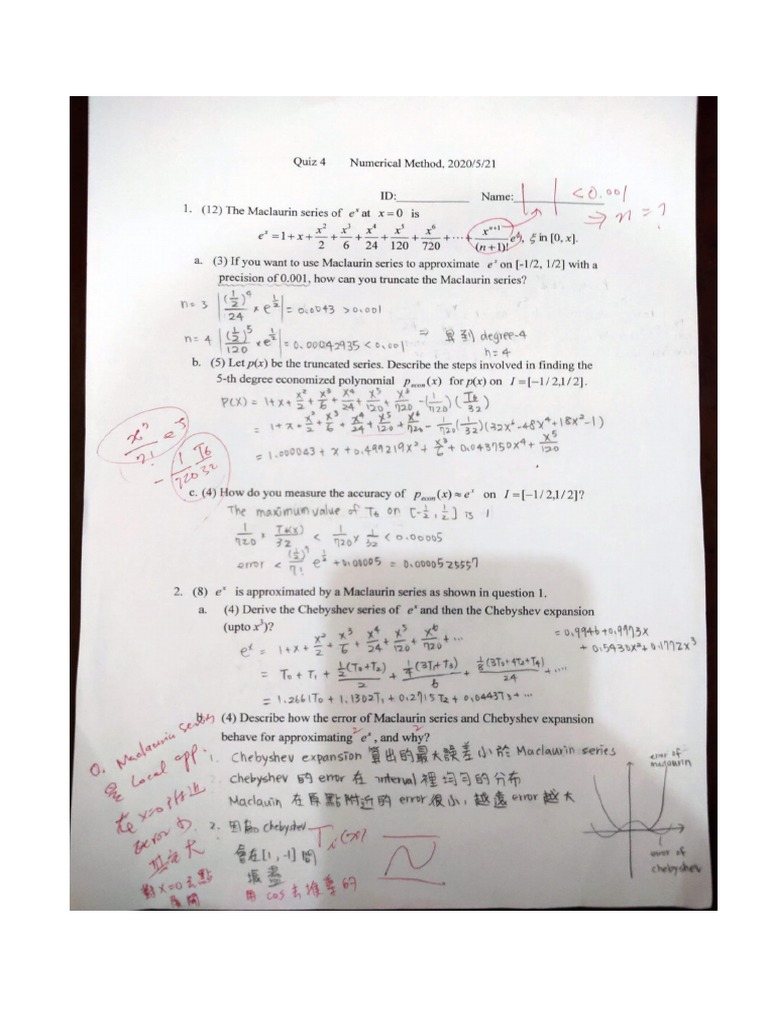 Quiz 4 Numerical Method, 2020/5/21
ID:____________ Name:________________
< 0.001
⇒ n = ?
1. (12) The Maclaurin series of e^x at x = 0 is
e^x = 1 + x + x^2/2 + x^3/6 + x^4/24 + x^5/120 + x^6/720 + ⋯ + x^(n+1)/(n+1)! e^ξ, ξ in [0, x].
a. (3) If you want to use Maclaurin series to approximate e^x on [-1/2, 1/2] with a
precision of 0.001, how can you truncate the Maclaurin series?
n = 3 |(1/2)^4/24 × e^(1/2)| = 0.0043 > 0.001
n = 4 |(1/2)^5/120 × e^(1/2)| = 0.00042935 < 0.001
⇒ 累到 degree-4
n = 4
b. (5) Let p(x) be the truncated series. Describe the steps involved in finding the
5-th degree economized polynomial p_econ(x) for p(x) on I = [−1/2,1/2].
P(X) = 1 + x + x^2/2 + x^3/6 + x^4/24 + x^5/120 + x^6/720 - (1/720)(T6/32)
= 1 + x + x^2/2 + x^3/6 + x^4/24 + x^5/120 + x^6/720 - 1/720 (1/32)(32x^6 - 48x^4 + 18x^2 - 1)
= 1.000043 + x + 0.499219x^2 + x^3/6 + 0.043750x^4 + x^5/120
x^7/7! e^ξ
- 1/720 T6/32
c. (4) How do you measure the accuracy of p_econ(x) ≈ e^x on I = [−1/2,1/2]?
The maximum value of T6 on [-1/2, 1/2] is 1
1/720 × T6(x)/32 < 1/720 × 1/32 < 0.00005
error < (1/2)^7/7! e^(1/2) + 0.00005 = 0.0000525557
2. (8) e^x is approximated by a Maclaurin series as shown in question 1.
a. (4) Derive the Chebyshev series of e^x and then the Chebyshev expansion
(upto x^3)?
e^x = 1 + x + x^2/2 + x^3/6 + x^4/24 + x^5/120 + x^6/720 + ⋯
= T0 + T1 + 1/2(T0+T2)/2 + 1/4(3T1+T3)/6 + 1/8(3T0+4T2+T4)/24 + ⋯
= 1.2661T0 + 1.1302T1 + 0.2715T2 + 0.0443T3 + ⋯
= 0.9946 + 0.9973x
+ 0.5430x^2 + 0.1772x^3
b. (4) Describe how the error of Maclaurin series and Chebyshev expansion
behave for approximating e^x, and why?
2 2
1. Chebyshev expansion 算出的最大誤差小於 Maclaurin series
chebyshev 的 error 在 interval 裡均勻的分布
Maclauin 在原點附近的 error 很小，越遠 error 越大
2. 因為 chebyshev
會在[1, -1]間
震盪
Ti(x)
用 cos 去推導的
0. Maclaurin series
是 Local app.
在 x=0 附近
error 小
其它大
對 x=0 去點
展開
error of
maclourin
error of
chebyshev